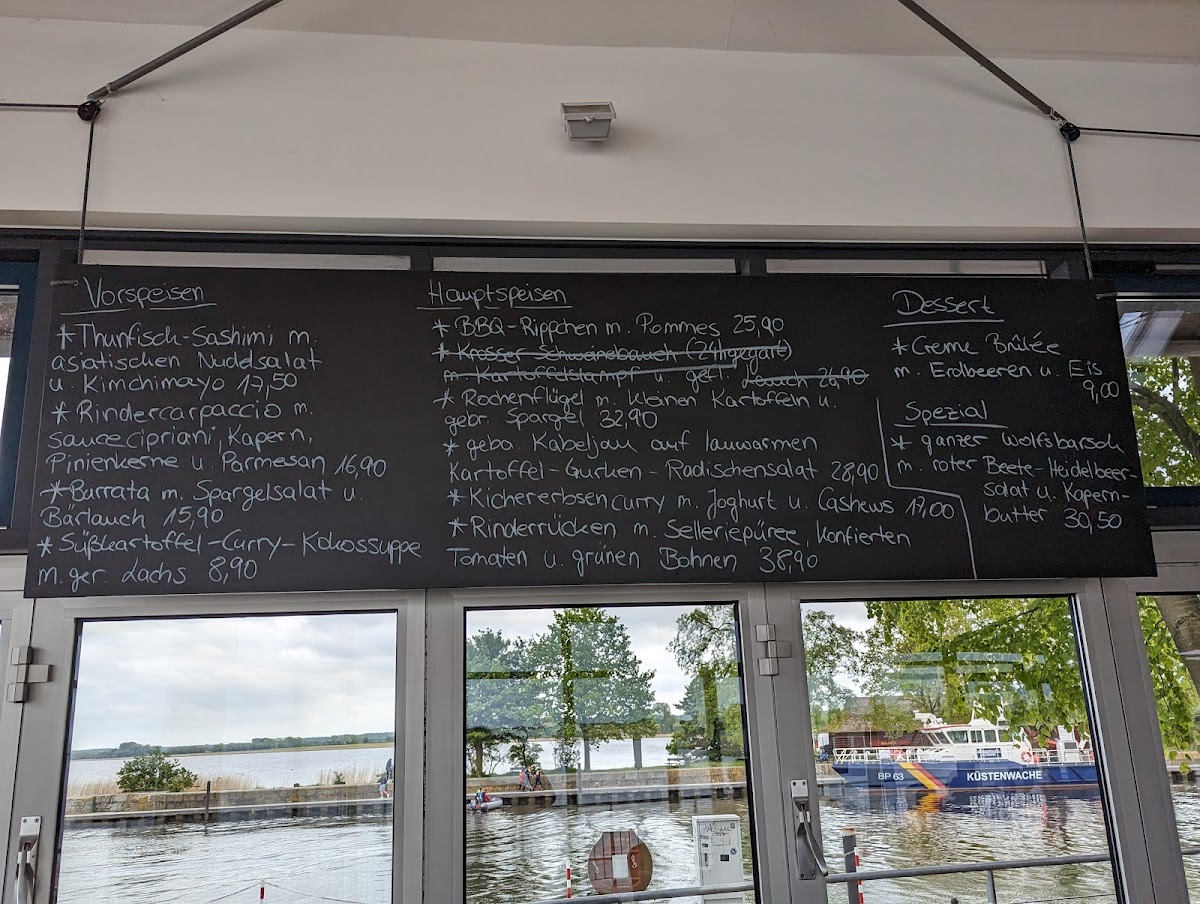 Vorspeisen
* Thunfisch-Sashimi m.
asiatischen Nudelsalat
u. Kimchimayo 17,50
* Rindercarpaccio m.
sauce cipriani, Kapern,
Pinienkerne u. Parmesan 16,90
* Burrata m. Spargelsalat u.
Bärlauch 15,90
* Süßkartoffel-Curry-Kokossuppe
m. ger. Lachs 8,90
Hauptspeisen
* BBQ-Rippchen m. Pommes 25,90
* Krosser Schweinebauch (24h gegart)
m. Kartoffelstampf u. gefl. Lauch 26,90
* Rochenflügel m. kleinen Kartoffeln u.
gebr. Spargel 32,90
* geba. Kabeljau auf lauwarmen
Kartoffel-Gurken-Radischensalat 28,90
* Kichererbsencurry m. Joghurt u. Cashews 17,00
* Rinderrücken m. Selleriepüree, konfierten
Tomaten u. grünen Bohnen 38,90
Dessert
* Creme Brûlée
m. Erdbeeren u. Eis
9,00
Spezial
* ganzer Wolfsbarsch
m. roter Beete-Heidelbeer-
salat u. Kapern-
butter 30,50
BP 63
KÜSTENWACHE